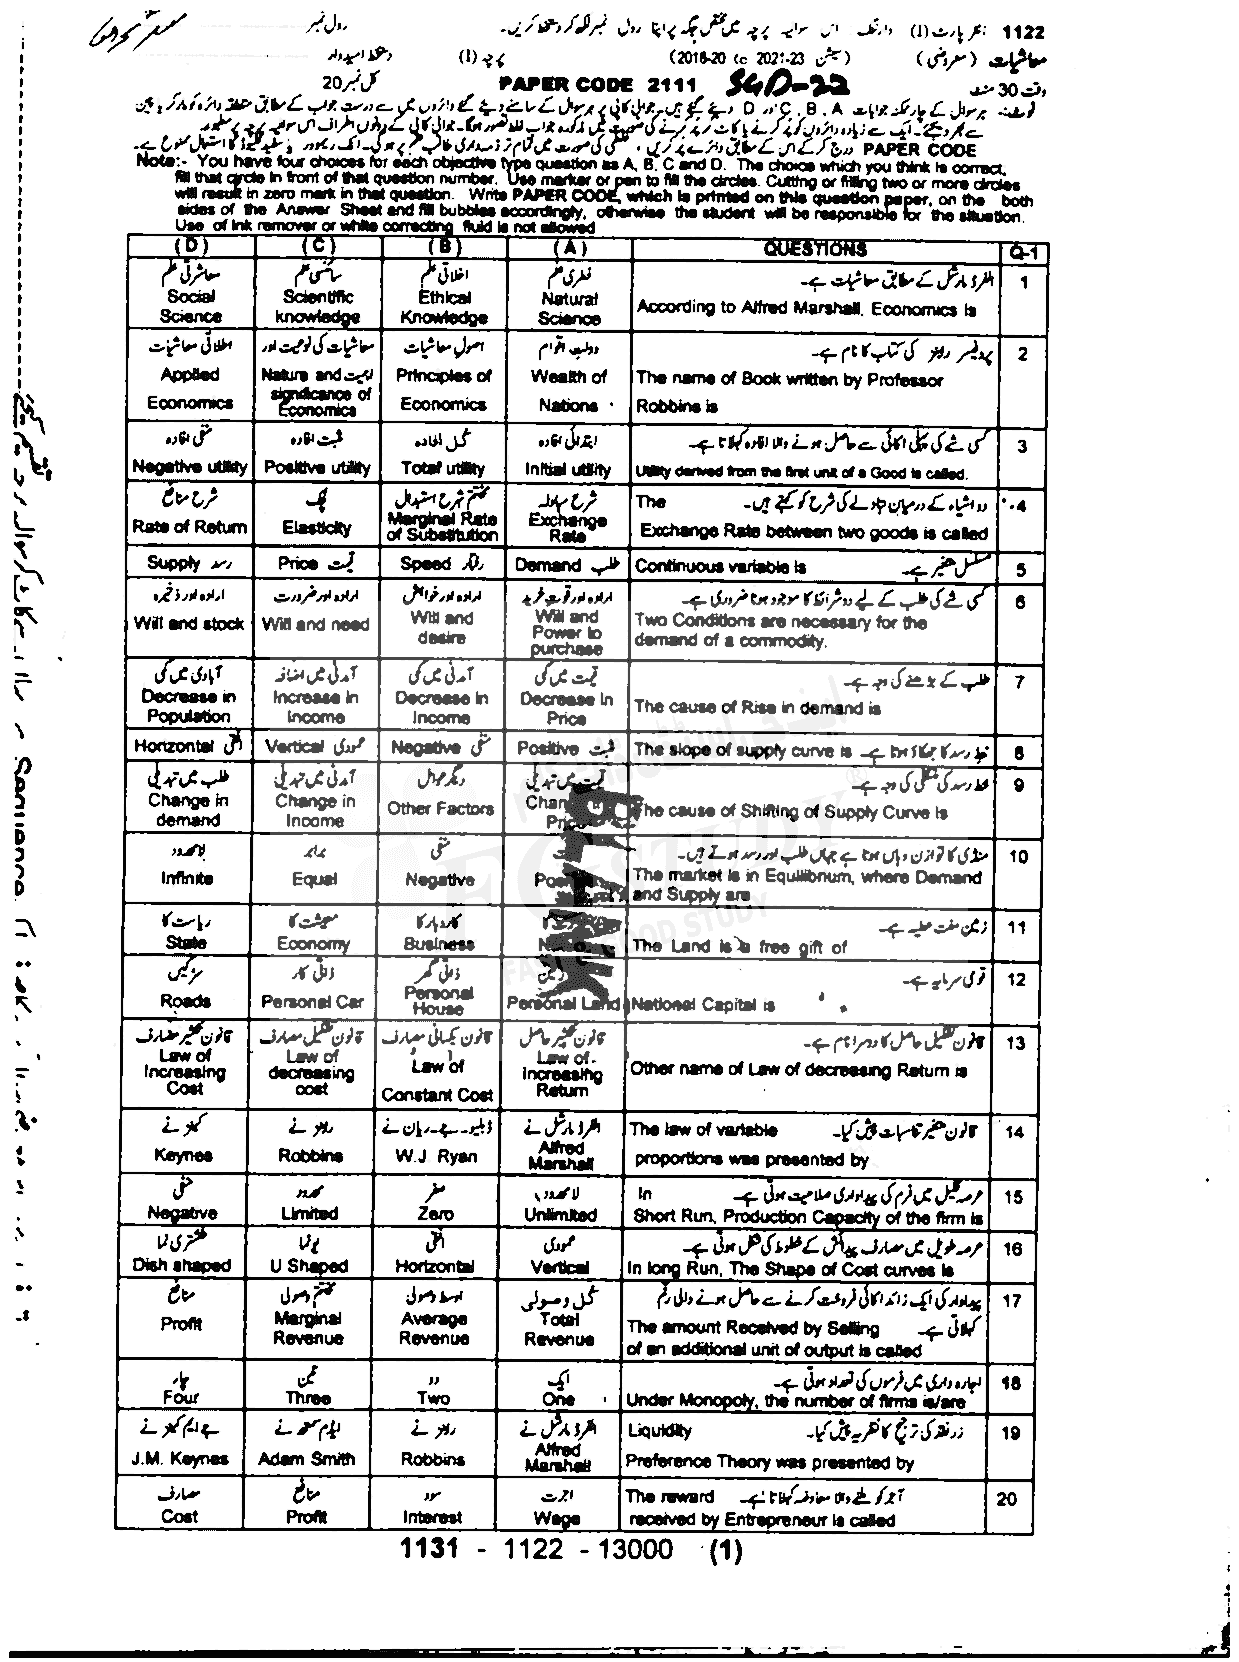 1122 انٹر پارٹ (I) وارننگ۔ اس سوالیہ پرچہ میں مختص جگہ پر اپنا رول نمبر لکھ کر دستخط کریں۔ رول نمبر
معاشیات (معروضی) (سیشن 2018-20 to 2021-23) پرچہ (I) دستخط امیدوار
وقت 30 منٹ PAPER CODE 2111 SGD-22 کل نمبر 20
نوٹ:- ہر سوال کے چار ممکنہ جوابات A ، B ، C اور D دیئے گئے ہیں۔ جوابی کاپی پر ہر سوال کے سامنے دیئے گئے دائروں میں سے درست جواب کے مطابق متعلقہ دائرہ کو مارکر یا پین
سے بھر دیجئے۔ ایک سے زیادہ دائروں کو پُر کرنے یا کاٹ کر پُر کرنے کی صورت میں مذکورہ جواب غلط تصور ہوگا۔ جوابی کاپی کے دونوں اطراف اس سوالیہ پرچہ پر مطبوعہ
PAPER CODE درج کر کے اس کے مطابق دائرے پُر کریں، غلطی کی صورت میں تمام تر ذمہ داری طالب علم پر ہوگی۔ انک ریموور یا سفید فلیوڈ کا استعمال ممنوع ہے۔
Note:- You have four choices for each objective type question as A, B, C and D. The choice which you think is correct,
fill that circle in front of that question number. Use marker or pen to fill the circles. Cutting or filling two or more circles
will result in zero mark in that question. Write PAPER CODE, which is printed on this question paper, on the both
sides of the Answer Sheet and fill bubbles accordingly, otherwise the student will be responsible for the situation.
Use of ink remover or white correcting fluid is not allowed
(D) (C) (B) (A) QUESTIONS Q-1
معاشرتی علم سائنسی علم اخلاقی علم فطری علم الفریڈ مارشل کے مطابق معاشیات ہے۔ 1
Social Science Scientific knowledge Ethical Knowledge Natural Science According to Alfred Marshall, Economics is
اطلاقی معاشیات معاشیات کی نوعیت اور اہمیت اصول معاشیات دولت اقوام پروفیسر رابنز کی کتاب کا نام ہے۔ 2
Applied Economics Nature and significance of Economics Principles of Economics Wealth of Nations The name of Book written by Professor Robbins is
منفی افادہ مثبت افادہ کل افادہ ابتدائی افادہ کسی شے کی پہلی اکائی سے حاصل ہونے والا افادہ کہلاتا ہے۔ 3
Negative utility Positive utility Total utility Initial utility Utility derived from the first unit of a Good is called.
شرح منافع لچک مختتم شرح استبدال شرح مبادلہ دو اشیاء کے درمیان تبادلے کی شرح کو کہتے ہیں۔ 4
Rate of Return Elasticity Marginal Rate of Substitution Exchange Rate The Exchange Rate between two goods is called
Supply رسد Price قیمت Speed رفتار Demand طلب Continuous variable is مسلسل متغیر ہے۔ 5
ارادہ اور ذخیرہ ارادہ اور ضرورت ارادہ اور خواہش ارادہ اور قوت خرید کسی شے کی طلب کے لیے دو شرائط کا موجود ہونا ضروری ہے۔ 6
Will and stock Will and need Will and desire Will and Power to purchase Two Conditions are necessary for the demand of a commodity.
آبادی میں کمی آمدنی میں اضافہ آمدنی میں کمی قیمت میں کمی طلب کے بڑھنے کی وجہ ہے۔ 7
Decrease in Population Increase in Income Decrease in Income Decrease in Price The cause of Rise in demand is
Horizontal افقی Vertical عمودی Negative منفی Positive مثبت The slope of supply curve is خط رسد کا جھکاؤ ہوتا ہے۔ 8
طلب میں تبدیلی آمدنی میں تبدیلی دیگر عوامل قیمت میں تبدیلی خط رسد کی منتقلی کی وجہ ہے۔ 9
Change in demand Change in Income Other Factors The cause of Shifting of Supply Curve is
لامحدود برابر منفی منڈی کا توازن وہاں ہوتا ہے جہاں طلب اور رسد ہوتے ہیں۔ 10
Infinite Equal Negative The market is in Equilibrium, where Demand and Supply are
ریاست کا معیشت کا کاروبار کا زمین مفت عطیہ ہے۔ 11
State Economy Business The Land is a free gift of
سڑکیں ذاتی کار ذاتی گھر زمین قومی سرمایہ ہے۔ 12
Roads Personal Car Personal House Personal Land National Capital is
قانون تکثیر مصارف قانون تقلیل مصارف قانون یکسانی مصارف قانون تکثیر حاصل قانون تقلیل حاصل کا دوسرا نام ہے۔ 13
Law of Increasing Cost Law of decreasing cost Law of Constant Cost Law of Increasing Return Other name of Law of decreasing Return is
کینز نے رابنز نے ڈبلیو۔جے۔ریان نے الفریڈ مارشل نے قانون متغیر تناسبات پیش کیا۔ 14
Keynes Robbins W.J Ryan Alfred Marshall The law of variable proportions was presented by
منفی محدود صفر لامحدود عرصہ قلیل میں فرم کی پیداواری صلاحیت ہوتی ہے۔ 15
Negative Limited Zero Unlimited In Short Run, Production Capacity of the firm is
طشتری نما یو نما افقی عمودی عرصہ طویل میں مصارف پیدائش کے خطوط کی شکل ہوتی ہے۔ 16
Dish shaped U Shaped Horizontal Vertical In long Run, The Shape of Cost curves is
منافع مختتم وصولی اوسط وصولی کل وصولی پیداوار کی ایک زائد اکائی فروخت کرنے سے حاصل ہونے والی رقم کہلاتی ہے۔ 17
Profit Marginal Revenue Average Revenue Total Revenue The amount Received by Selling of an additional unit of output is called
چار تین دو ایک اجارہ داری میں فرموں کی تعداد ہوتی ہے۔ 18
Four Three Two One Under Monopoly, the number of firms is/are
جے ایم کینز نے ایڈم سمتھ نے رابنز نے الفریڈ مارشل نے زر نقد کی ترجیح کا نظریہ پیش کیا۔ 19
J.M. Keynes Adam Smith Robbins Alfred Marshall Liquidity Preference Theory was presented by
مصارف منافع سود اجرت آجر کو ملنے والا معاوضہ کہلاتا ہے۔ 20
Cost Profit Interest Wage The reward received by Entrepreneur is called
1131 - 1122 - 13000 (1)